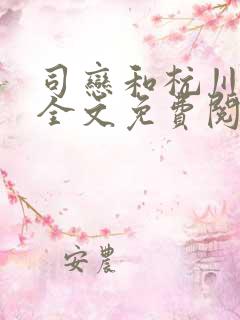 司戀和杭川
全文免費閱
安農